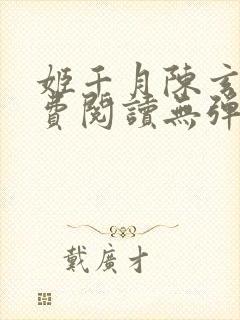 姬千月陳玄
費閱讀無彈
戴廣才